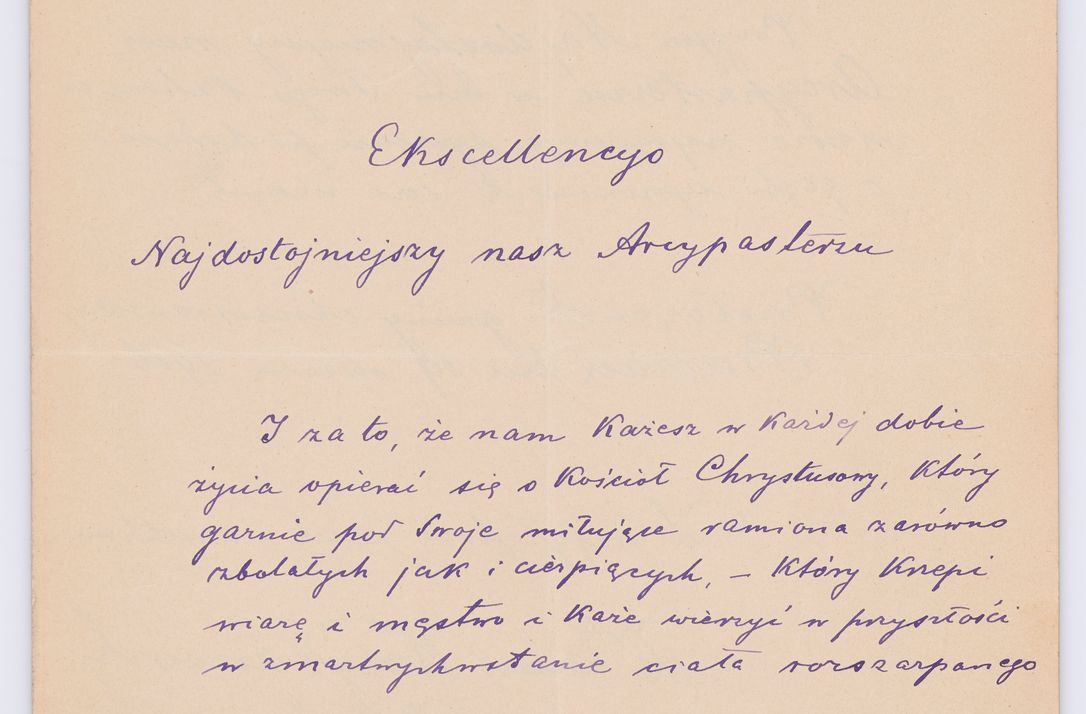 Ekscellencyo
Najdostojniejszy nasz Arcypasterzu
I za to, że nam każesz w każdej dobie
życia opierać się o Kościół Chrystusowy, który
garnie pod Swoje miłujące ramiona zarówno
zbolałych jak i cierpiących, – który krzepi
wiarę i męstwo i każe wierzyć w przyszłości
w zmartwychwstanie ciała rozszarpanego